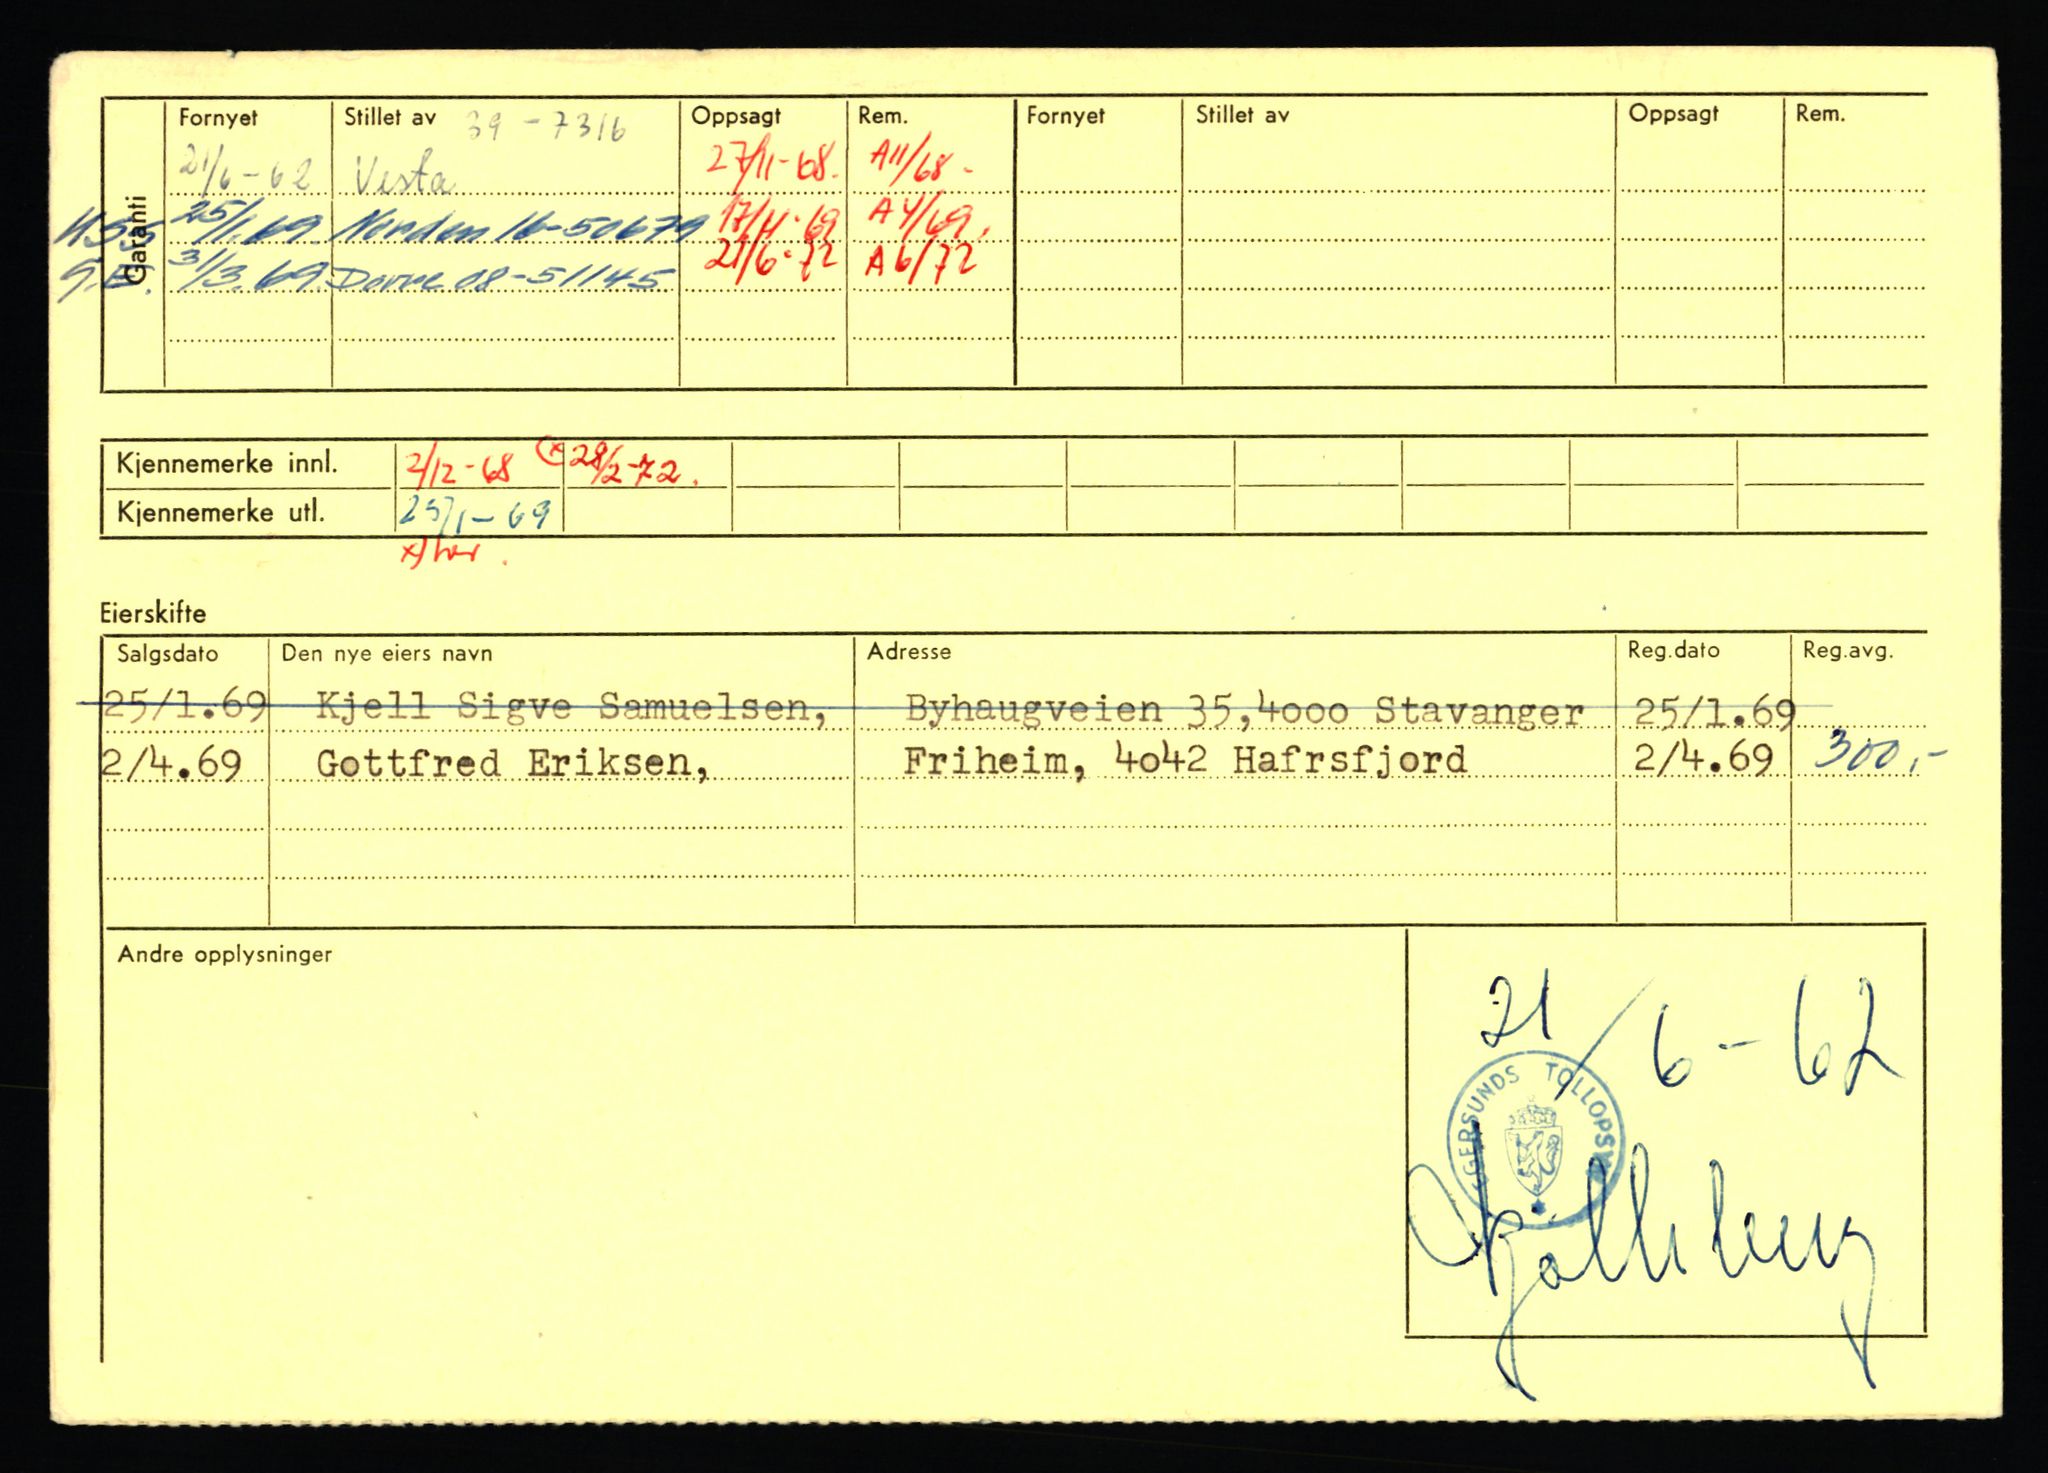 Garanti
Fornyet Stillet av 39-7316 Oppsagt Rem. Fornyet Stillet av Oppsagt Rem.
21/6-62 Vesta 27/11-68. A11/68-
K.S.S. 25/1.69 Norden 16-50679 17/4-69 A4/69.
G.E. 31/3.69. 08-51145 21/6-72 A6/72
Kjennemerke innl. 2/12-68 (x 28/2-72.
Kjennemerke utl. 25/1-69
x)
Eierskifte
Salgsdato Den nye eiers navn Adresse Reg.dato Reg.avg.
25/1.69 Kjell Sigve Samuelsen, Byhaugveien 35,4ooo Stavanger 25/1.69
2/4.69 Gottfred Eriksen, Friheim, 4o42 Hafrsfjord 2/4.69 300,-
Andre opplysninger
21/6-62
EGERSUNDS TOLLOPSYN